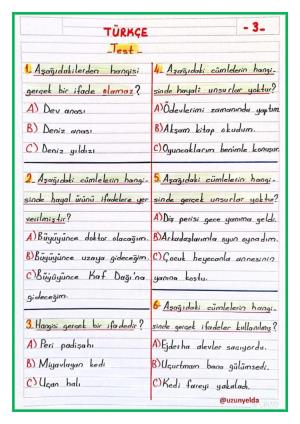 TÜRKÇE
- 3 -
Test
1. Aşağıdakilerden hangisi
gerçek bir ifade olamaz?
A) Dev anası
B) Deniz anası
C) Deniz yıldızı
2. Aşağıdaki cümlelerin hangi-
sinde hayal ürünü ifadelere yer
verilmiştir?
A) Büyüyünce doktor olacağım.
B) Büyüyünce uzaya gideceğim.
C) Büyüyünce Kaf Dağı'na
gideceğim.
3. Hangisi gerçek bir ifadedir?
A) Peri padişahı
B) Miyavlayan kedi
C) Uçan halı
4. Aşağıdaki cümlelerin hangi-
sinde hayali unsurlar yoktur?
A) Ödevlerimi zamanında yaptım.
B) Akşam kitap okudum.
C) Oyuncaklarım benimle konuşur.
5. Aşağıdaki cümlelerin hangi-
sinde gerçek unsurlar yoktur?
A) Diş perisi gece yanıma geldi.
B) Arkadaşlarımla oyun oynadım.
C) Çocuk heyecanla annesinin
yanına koştu.
6- Aşağıdaki cümlelerin hangi-
sinde gerçek ifadeler kullanılmış?
A) Ejderha alevler saçıyordu.
B) Uçurtmam bana gülümsedi.
C) Kedi fareyi yakaladı.
@uzunyelda